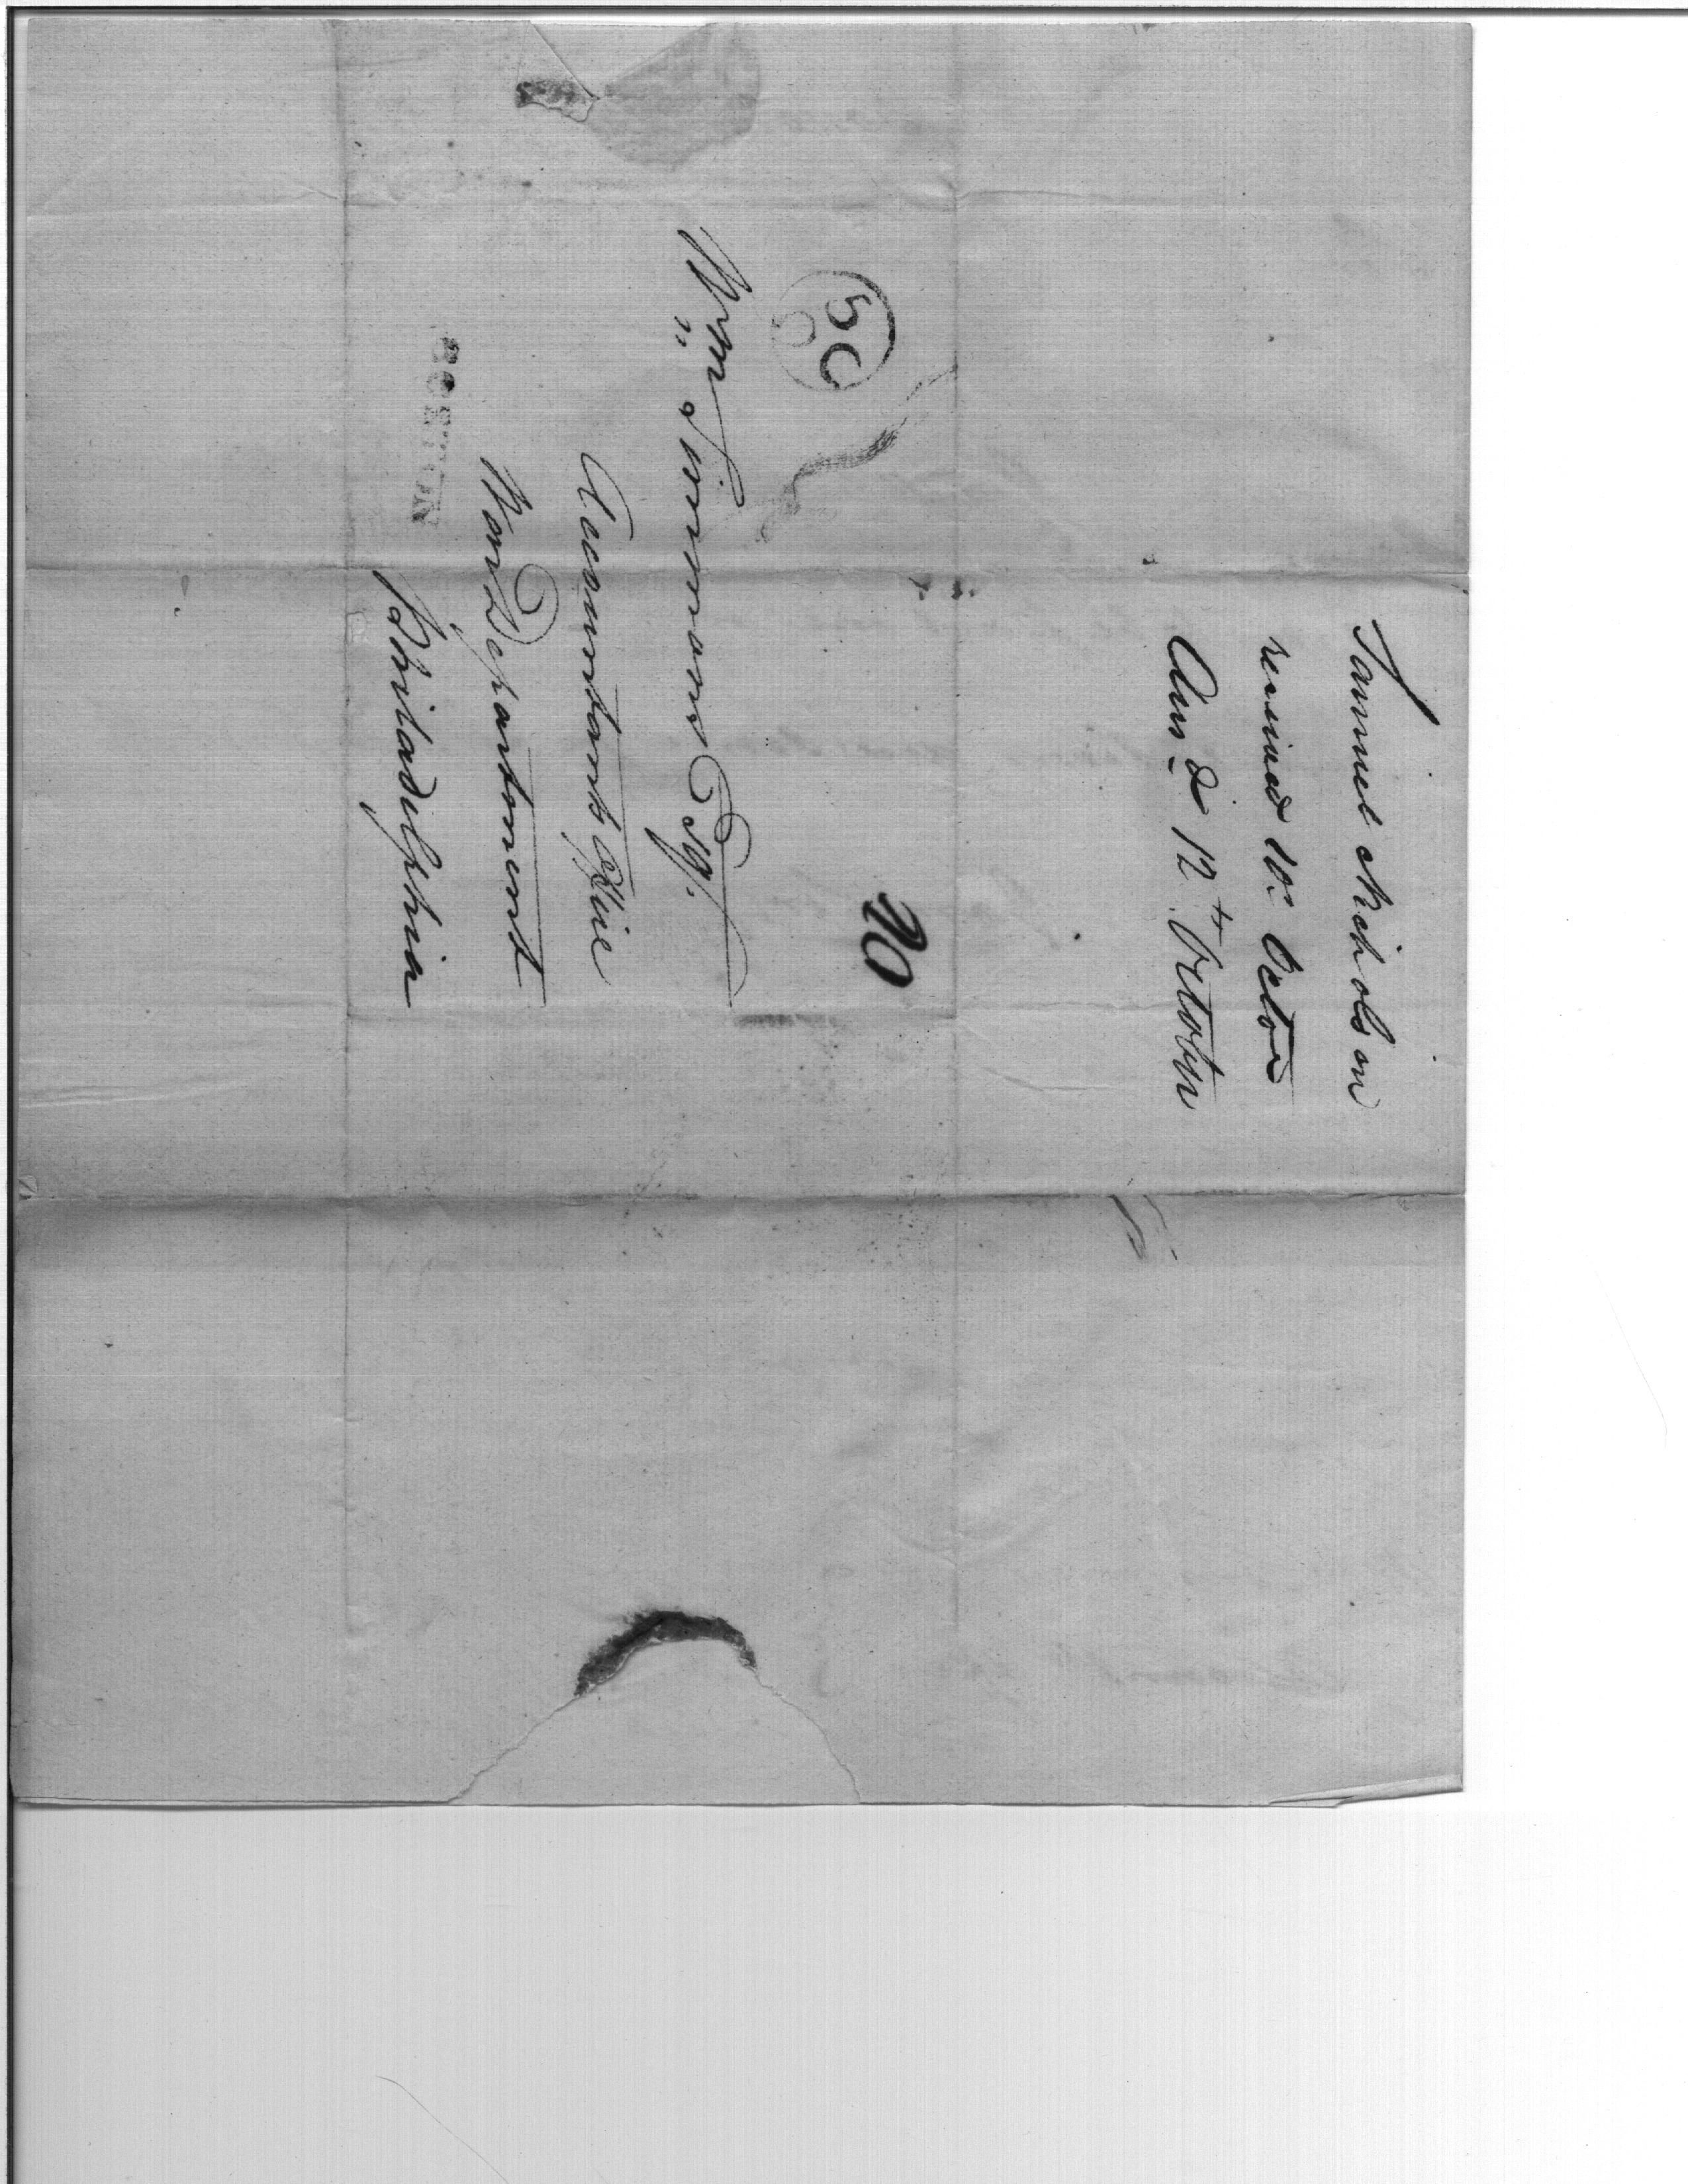 Samuel Nicholson
received 10. Octor
Ans.d 12th October
20
5 OC
Wm Simmons Esqr.
Accountants Office
War Department
Philadelphia
BOSTON